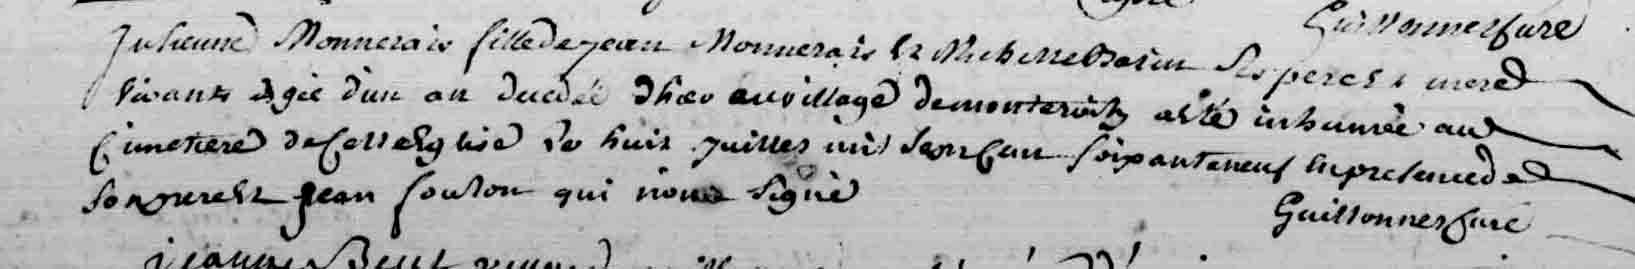 Guillonner Curé
Julienne Monnerais fille de jean Monnerais et Michelle ses pere et mere
vivants agée d'un an decedée d'hier au village de a esté inhumée au
Cimetiere de cette Eglise le huit juillet mil sept Cent soixante neuf en presence de
son pere et jean foulon qui n'ont signé
Guillonner Curé